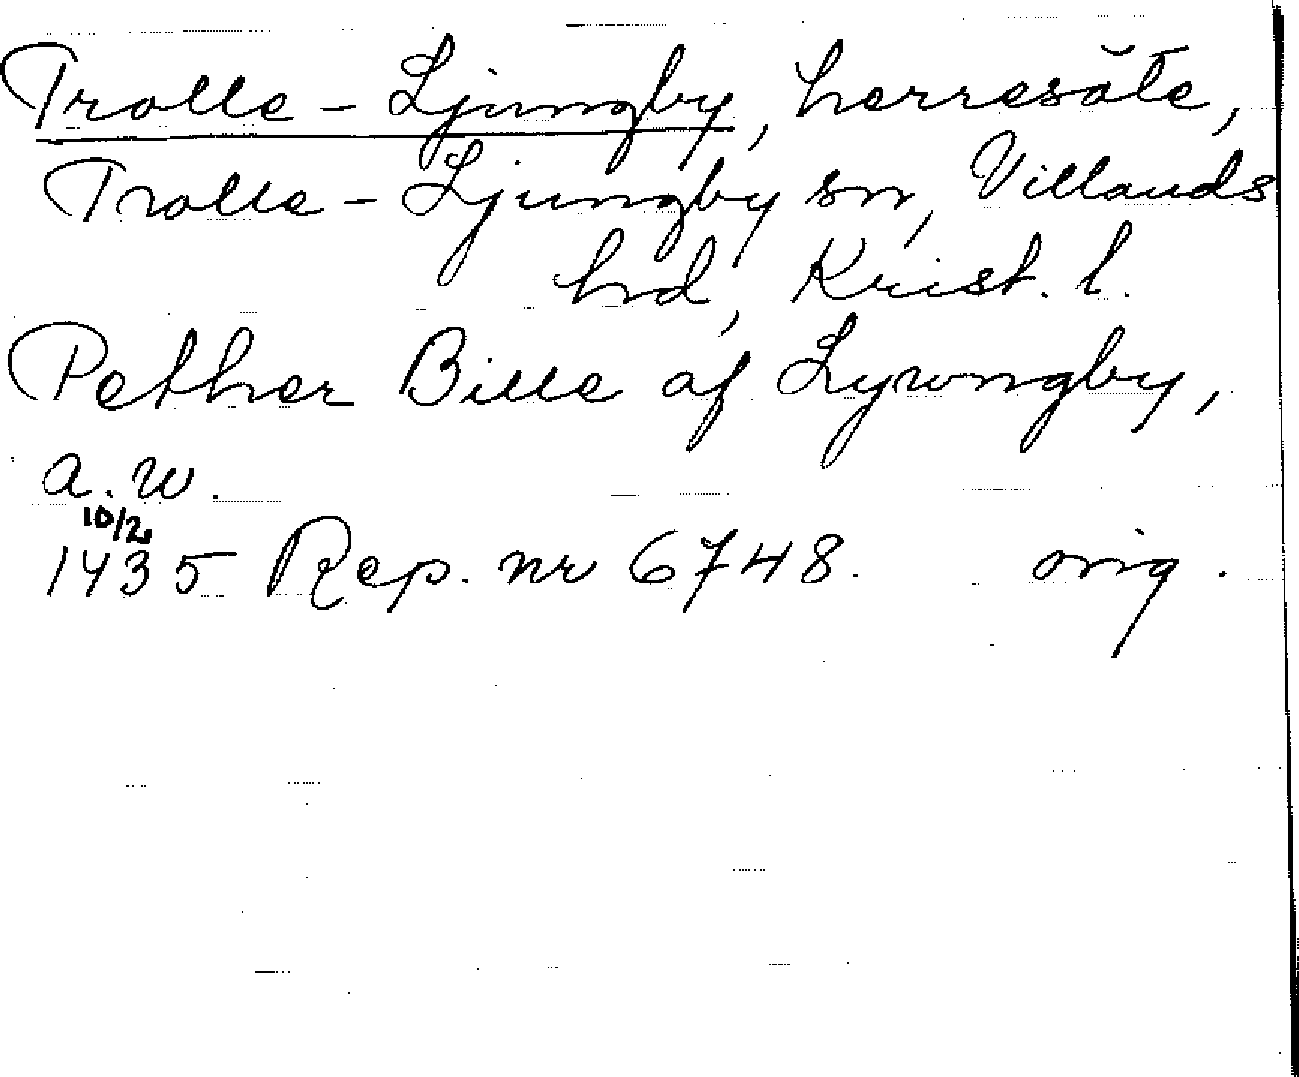 Trolle-Ljungby, herresäte,
Trolle-Ljungby sn, Villands
hd, Krist. l.
Pether Bille af Lywngby,
a. w.
10/2
1435 Rep. nr 6748. orig.